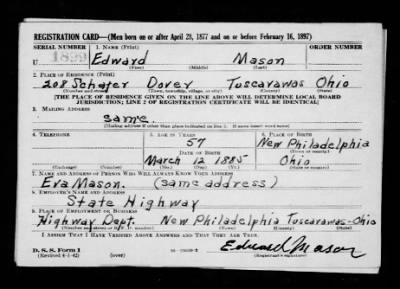 REGISTRATION CARD—(Men born on or after April 28, 1877 and on or before February 16, 1897)
SERIAL NUMBER 1. NAME (Print) ORDER NUMBER
U 1899 Edward Mason
(First) (Middle) (Last)
2. PLACE OF RESIDENCE (Print)
208 Schafer Dover Tuscarawas Ohio
(Number and street) (Town, township, village, or city) (County) (State)
[THE PLACE OF RESIDENCE GIVEN ON THE LINE ABOVE WILL DETERMINE LOCAL BOARD
JURISDICTION; LINE 2 OF REGISTRATION CERTIFICATE WILL BE IDENTICAL]
3. MAILING ADDRESS
same.
[Mailing address if other than place indicated on line 2. If same insert word same]
4. TELEPHONE 5. AGE IN YEARS 6. PLACE OF BIRTH
57 New Philadelphia
DATE OF BIRTH (Town or county)
March 12 1885 Ohio
(Exchange) (Number) (Mo.) (Day) (Yr.) (State or country)
7. NAME AND ADDRESS OF PERSON WHO WILL ALWAYS KNOW YOUR ADDRESS
Eva Mason. (same address)
8. EMPLOYER'S NAME AND ADDRESS
State Highway
9. PLACE OF EMPLOYMENT OR BUSINESS
Highway Dept. New Philadelphia Tuscarawas-Ohio
(Number and street or R. F. D. number) (Town) (County) (State)
I AFFIRM THAT I HAVE VERIFIED ABOVE ANSWERS AND THAT THEY ARE TRUE.
D. S. S. Form 1
(Revised 4-1-42) (over) Edward Mason
(Registrant's signature)